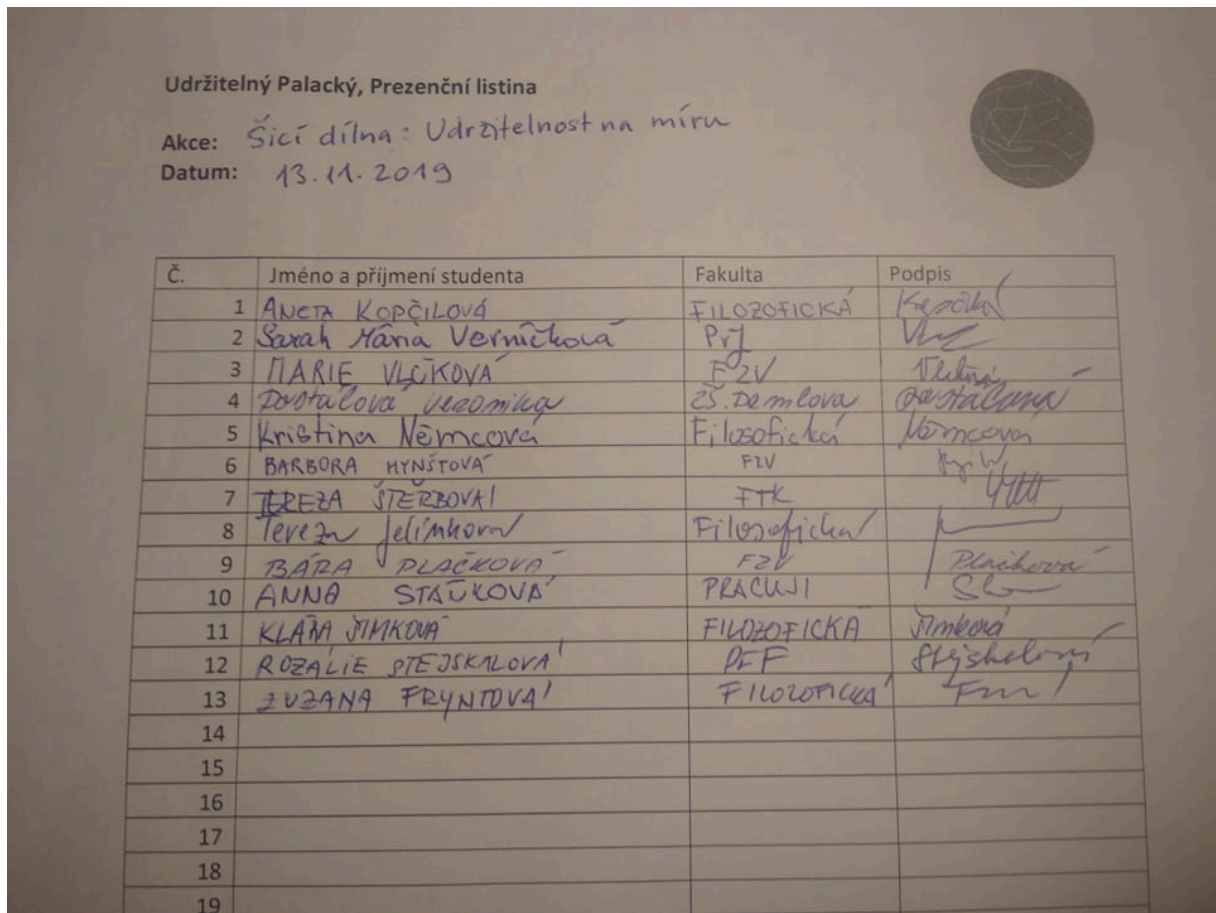 Udržitelný Palacký, Prezenční listina
Akce: Šicí dílna: Udržitelnost na míru
Datum: 13.11.2019
Č. Jméno a příjmení studenta Fakulta Podpis
1 ANETA KOPČILOVÁ FILOZOFICKÁ
2 Sarah Mária Verníčková PrF
3 MARIE VLČKOVÁ FZV
4 Dostálová Veronika ZŠ. Demlova Dostálová
5 Kristina Němcová Filosofická Němcová
6 BARBORA HYNŠTOVÁ FZV
7 TEREZA ŠTĚRBOVÁ FTK
8 Tereza Jelínková Filosofická
9 BÁRA PLAČKOVÁ FZV Plačková
10 ANNA PRACUJI
11 KLÁRA ŠIMKOVÁ FILOZOFICKÁ Šimková
12 ROZÁLIE STEJSKALOVÁ PFF Stejskalová
13 ZUZANA FRYNTOVÁ FILOZOFICKÁ
14
15
16
17
18
19